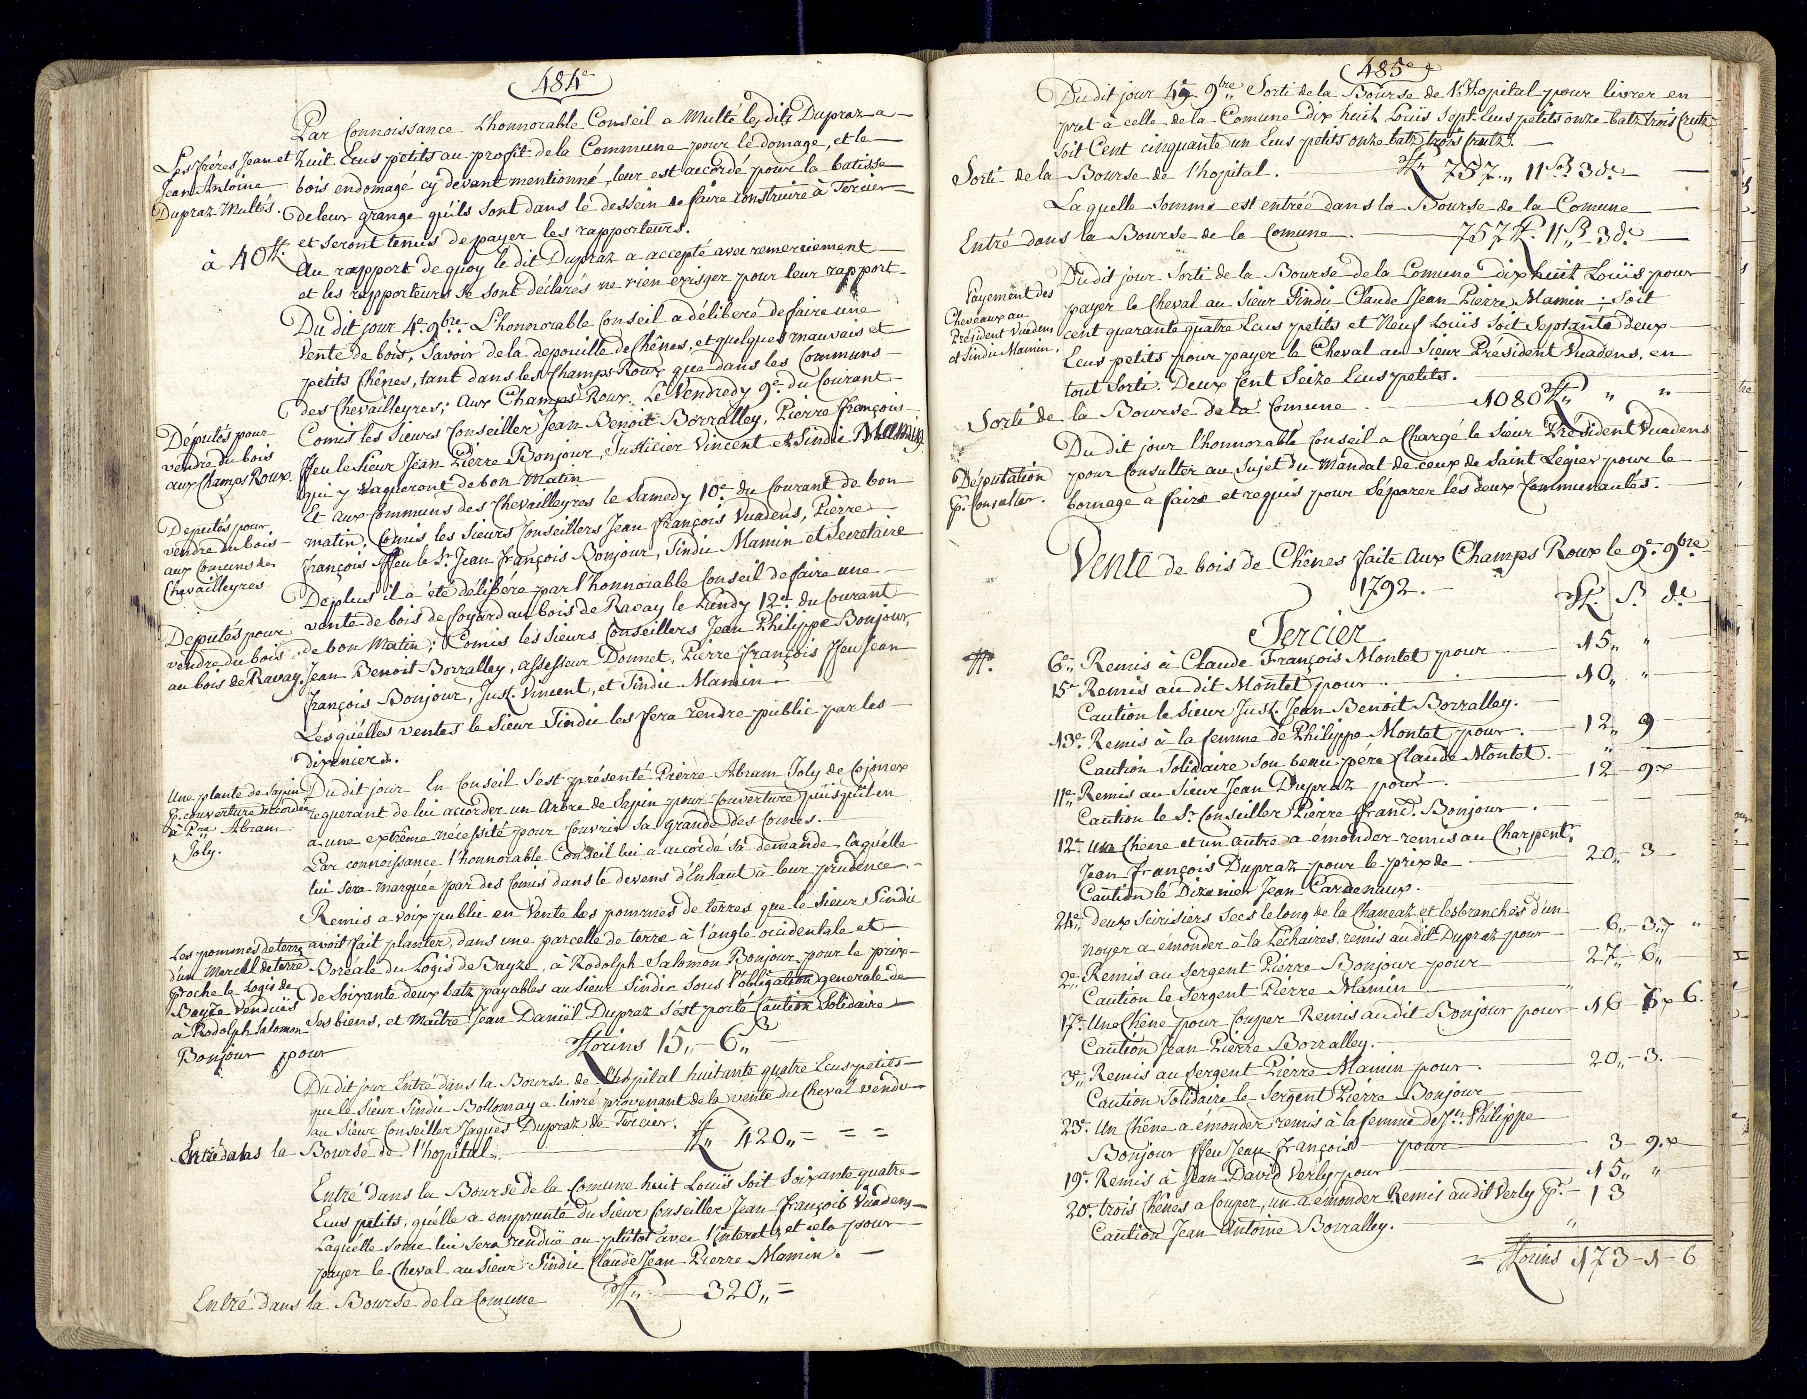 484e
Par Connoissance L'honnorable Conseil a Multé les dits Dupraz a
huit Ecus petits au profit de la Commune pour le domage, et le
Les frères Jean et
Jean Antoine
Dupraz Multés.
bois endomagé cy devant mentionné, leur est accordé pour la batisse
de leur grange qu'ils sont dans le dessein de faire construire à Tercier
et seront tenus de payer les rapporteurs.
à 40 ff.
Au rapport de quoy le dit Dupraz a accepté avec remerciement
et les rapporteurs se sont déclarés ne rien exiger pour leur rapport.
Du dit jour 4e 9bre. L'honnorable Conseil a déliberé de faire une
Vente de bois, Savoir de la depouille de Chênes, et quelques mauvais et
petits Chênes, tant dans les Champs-Roux que dans les Communs
des Chevailleyres; Aux Champs Roux. Le Vendredy 9e du Courant
Députés pour
vendre du bois
aux Champs Roux.
Comis les Sieurs Conseiller Jean Benoit Borralley, Pierre françois
ffeu le Sieur Jean Pierre Bonjour, Justicier Vincent et Sindic Mamin
qui y vaqueront de bon Matin
Et aux Communs des Chevailleyres le Samedy 10e du Courant de bon
Députés pour
vendre du bois
aux Comuns des
Chevailleyres
matin, Comis les Sieurs Conseillers Jean françois Vuadens, Pierre
françois ffeu le Sr. Jean françois Bonjour, Sindic Mamin et Secretaire
De plus il a été délibéré par l'honnorable Conseil de faire une
vente de bois de foyard au bois de Ravay le Lundy 12e du Courant
Deputés pour
vendre du bois
au bois de Ravay.
de bon Matin; Comis les Sieurs Conseillers Jean Philippe Bonjour,
Jean Benoit Borralley, assesseur Donnet, Pierre françois ffeu Jean
françois Bonjour, Just. Vincent, et Sindic Mamin
Les quelles ventes le Sieur Sindic les fera rendre public par les
dixeniers.
Une plante de Sapin
p. couverture accordée
à Pre. Abram
Joly.
Du dit jour En Conseil s'est présenté Pierre Abram Joly de Cojonex
requerant de lui accorder un Arbre de Sapin pour Couverture puisqu'il en
a une extrême nécessité pour couvrir sa grande des Comes.
Par connoissance l'honnorable Conseil lui a accordé sa demande laquelle
lui sera marquée par des Comis dans le devens d'Enhaut à leur prudence.
Remis a voix public en Vente les pommes de terres que le Sieur Sindic
Les pommes de terre
d'un Morcel de terre
proche le Logis de
Bayze vendues
à Rodolph Salomon
Bonjour pour
avoit fait planter, dans une parcelle de terre à l'angle occidentale et
Boréale du Logis de Bayze, à Rodolph Salomon Bonjour pour le prix
de Soixante deux batz payables au Sieur Sindic sous l'obligation generale de
Ses biens, et Maître Jean Daniël Dupraz s'est porté Caution Solidaire
fflorins 15,, - 6,, ß
Du dit jour Entré dans la Bourse de l'hopital huitante quatre Ecus petits
que le Sieur Sindic Bollomay a livré provenant de la vente du Cheval vendu
au Sieur Conseiller Jaques Dupraz de Tercier.
Entré dans la Bourse de l'hopital. ff,, 420,, = = =
Entré dans la Bourse de la Comune huit Louïs soit Soixante quatre
Ecus petits, qu'elle a emprunté du Sieur Conseiller Jean françois Vuadens
Laquelle some lui sera rendüe au plûtot avec l'interet, et cela pour
payer le Cheval au Sieur Sindic Claude Jean Pierre Mamin.
Entré dans la Bourse de la Comune ff,, 320,, =
485e
Du dit jour 4e 9bre Sorti de la Bourse de l'hopital pour livrer en
pret à celle de la Comune Dix huit Louïs Sept Ecus petits onze batz trois Cruts
soit Cent cinquante un Ecus petits onze batz trois Crutz.
Sorti de la Bourse de l'hopital. ff,, 757,, 11 ß 3 de
Laquelle Somme est entrée dans la Bourse de la Comune
Entré dans la Bourse de la Comune. 757 ff. 11 ß 3 de
Payement des
Chevaux au
Président Vuadens
et Sindic Mamin.
Du dit jour Sorti de la Bourse de la Comune dix huit Louïs pour
payer le Cheval au Sieur Sindic Claude Jean Pierre Mamin: Soit
cent quarante quatre Ecus petits et Neuf Louïs soit Septante deux
Ecus petits pour payer le Cheval au Sieur Président Vuadens, en
tout Sorti. Deux Cent Seize Ecus petits.
Sorti de la Bourse de la Comune. 1080 ff,, ,, ,,
Du dit jour l'honnorable Conseil a Chargé le Sieur Président Vuadens
Députation
p. Consulter.
pour Consulter au Sujet du Mandat de ceux de Saint Légier pour le
bornage a faire et requis pour Séparer les deux Communautés.
Vente de bois de Chênes faite Aux Champs Roux le 9e. 9bre
1792. ff. ß. de
Tercier
6e,, Remis à Claude François Montet pour 15,, ,,
15e Remis au dit Montet pour 10,, ,,
Caution le Sieur Just. Jean Benoit Borralley.
13e. Remis à la femme de Philippe Montet pour. 12,, 9
Caution Solidaire Son beau père Claude Montet.
11e,, Remis au Sieur Jean Dupraz pour 12 9,,
Caution le Sr. Conseiller Pierre Franc. Bonjour.
12e Un Chêne et un autre a émonder remis au Charpent.
Jean François Dupraz pour le prix de 20,, 3
Caution le Dizenier Jean Cardenaux.
24e,, deux Seirisiers Secs le long de la Chaneaz et les branches d'un
noyer a émonder à la Léchaires, remis au dit Dupraz pour 6,, 3,, ,,
2e,, Remis au Sergent Pierre Bonjour pour 27,, 6,,
Caution le Sergent Pierre Mamin
17e. Une Chêne pour Couper Remis au dit Bonjour pour 16 6. 6.
Caution Jean Pierre Borralley.
3e,, Remis au Sergent Pierre Mamin pour 20,, 3.
Caution Solidaire le Sergent Pierre Bonjour
23e. Un Chêne a émonder remis à la femme de Jn. Philippe
Bonjour ffeu Jean François pour 3 9.
19e. Remis à Jean David Verly pour 15,, ,,
20e. trois Chênes a Couper, un a émonder Remis au dit Verly p. 13
Caution Jean Antoine Borralley.
= fflorins 173 - 1 - 6